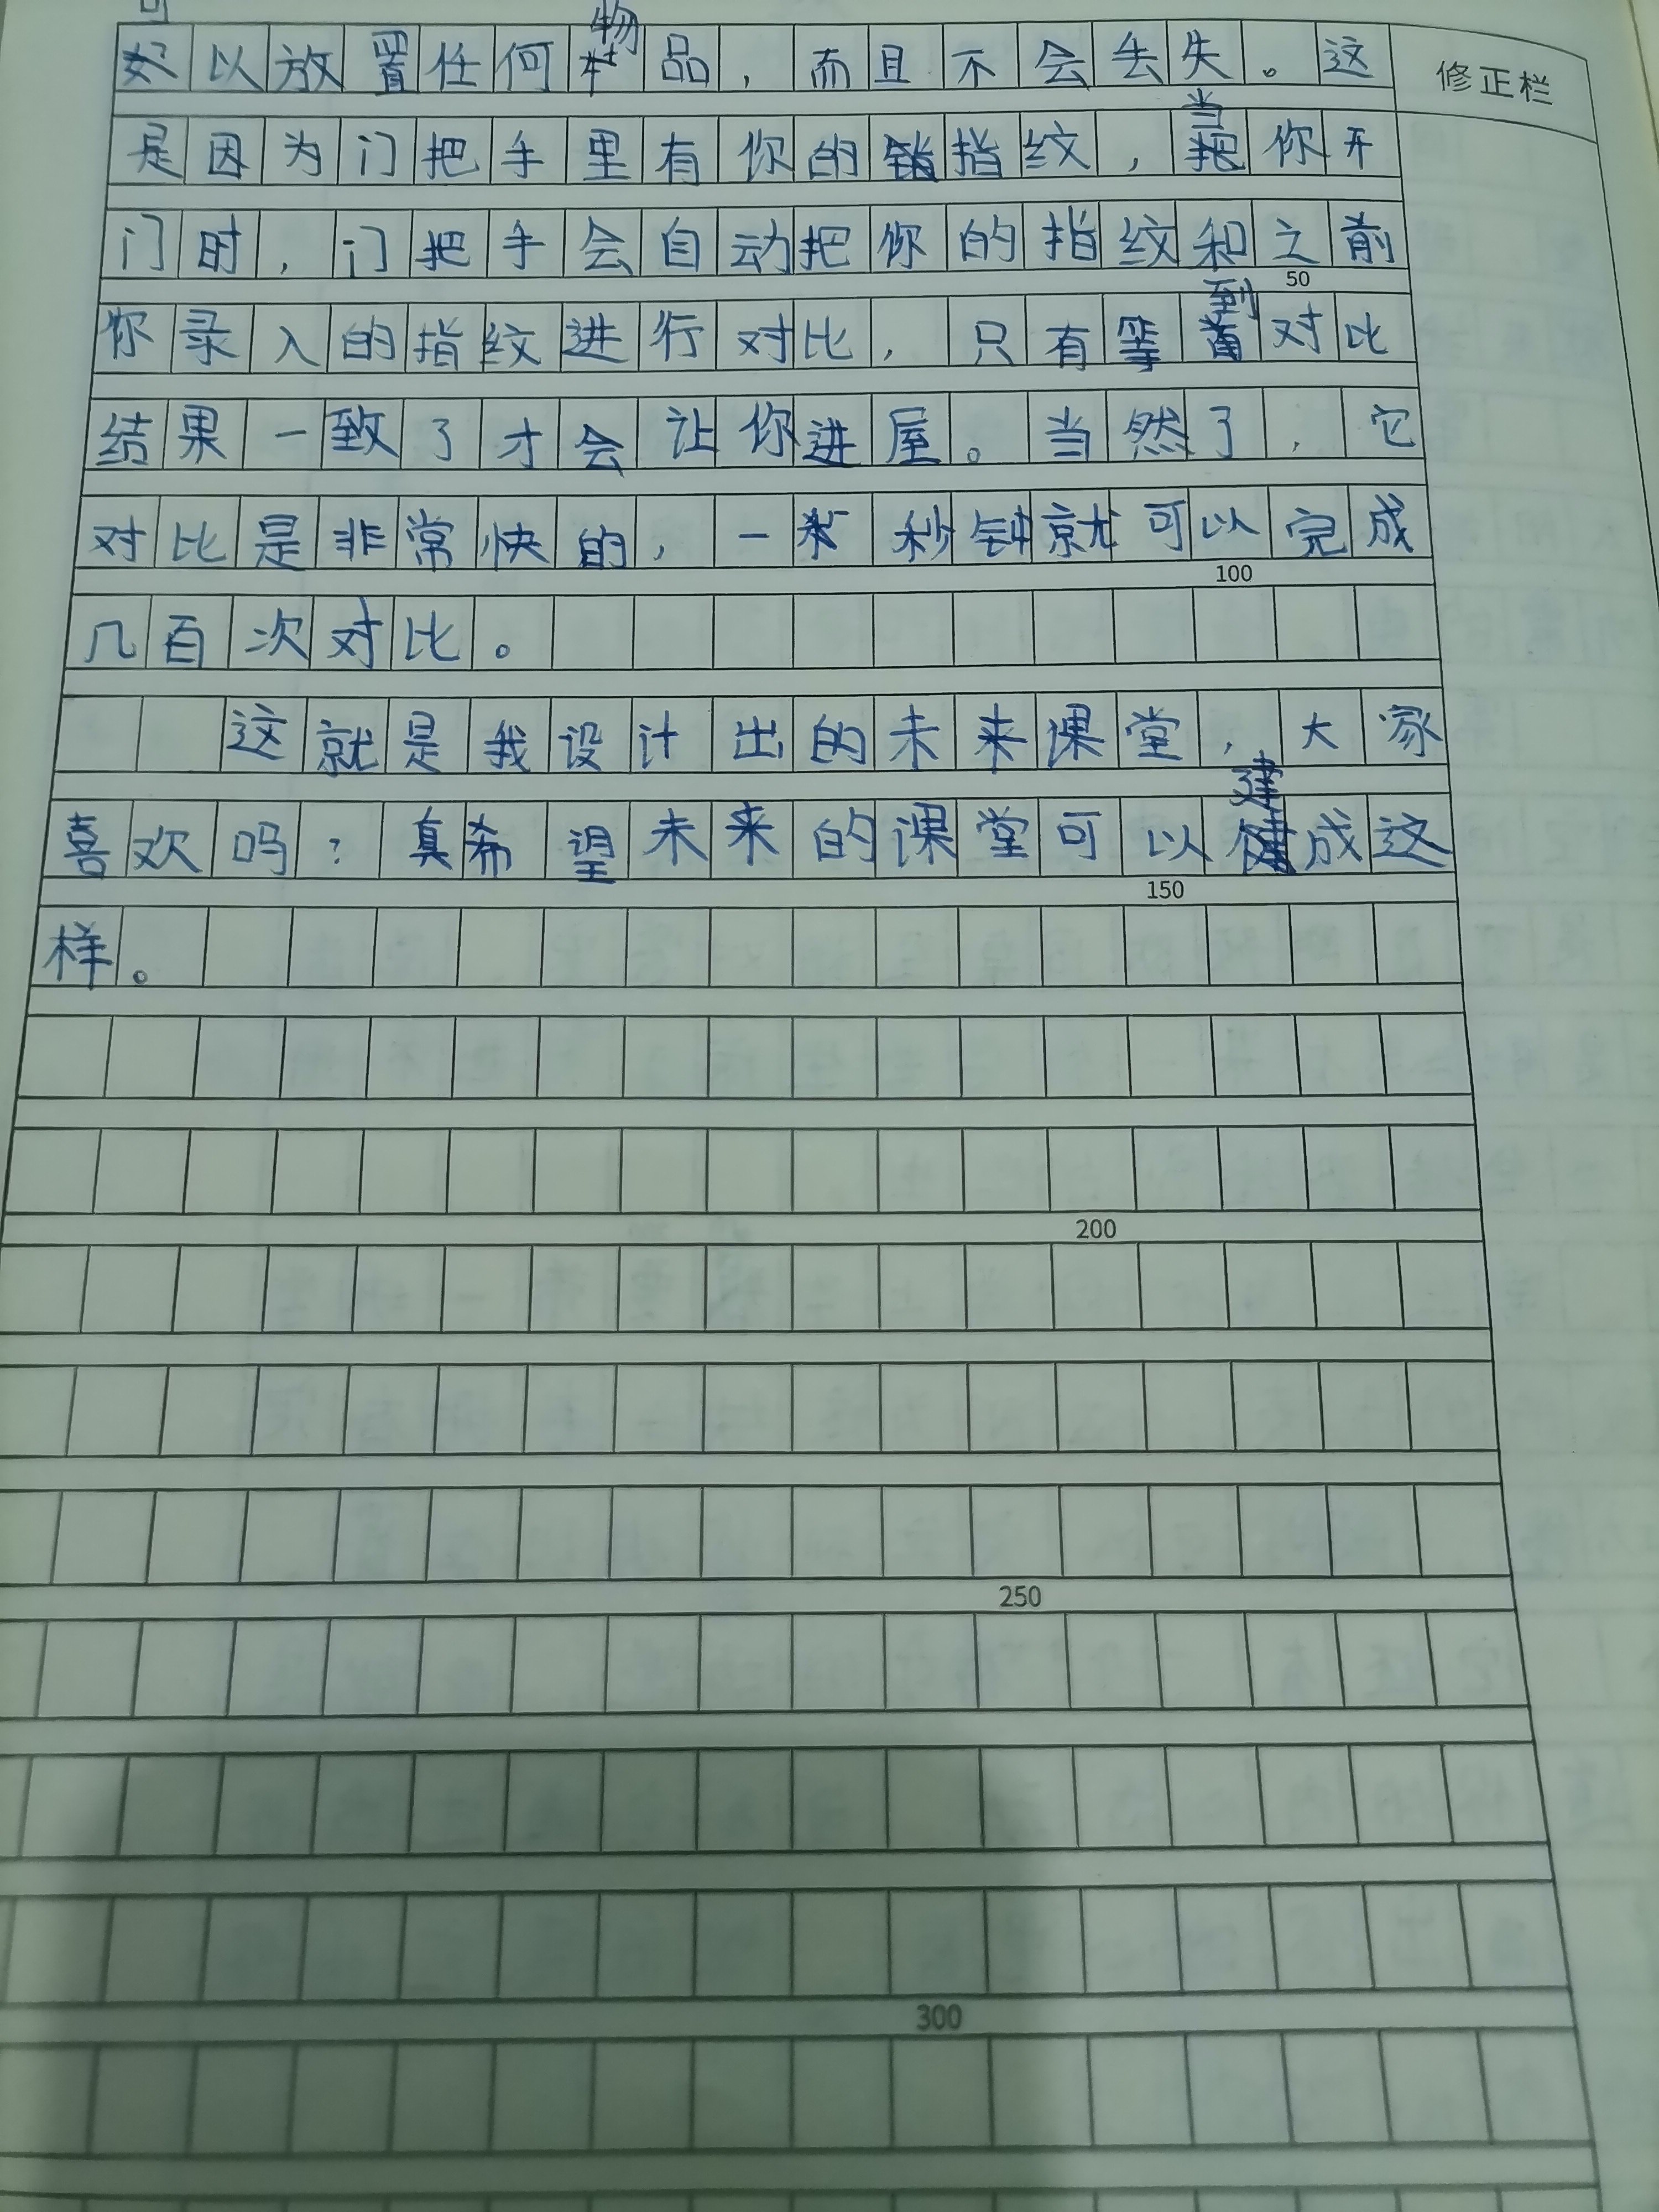 可以放置任何物品，而且不会丢失。这
修正栏
是因为门把手里有你的指纹，当你开
门时，门把手会自动把你的指纹和之前
50
你录入的指纹进行对比，只有等到对比
结果一致了才会让你进屋。当然了，它
对比是非常快的，一秒钟就可以完成
100
几百次对比。
这就是我设计出的未来课堂，大家
喜欢吗？真希望未来的课堂可以建成这
150
样。
200
250
300